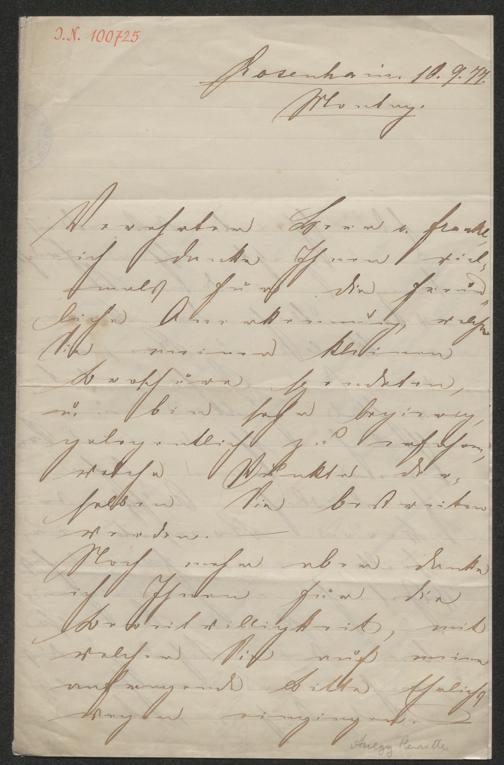 I.N. 100725
Rosenhain. 10.9.77.
Montag.
Verehrter Herr v. Franke,
ich danke Ihnen viel-
mals für die freund-
liche Anerkennung, welche
Sie meiner kleinen
Broschüre spendeten,
u. bin sehr begierig,
gelegentlich zu erfahren,
welche Punkte der-
selben Sie bestreiten
werden. —
Noch mehr aber danke
ich Ihnen für die
Bereitwilligkeit, mit
welcher Sie auf meine
anfragende Bitte
wegen eingingen. —